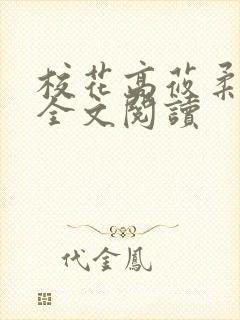 校花高莜柔
全文閱讀
代金鳳